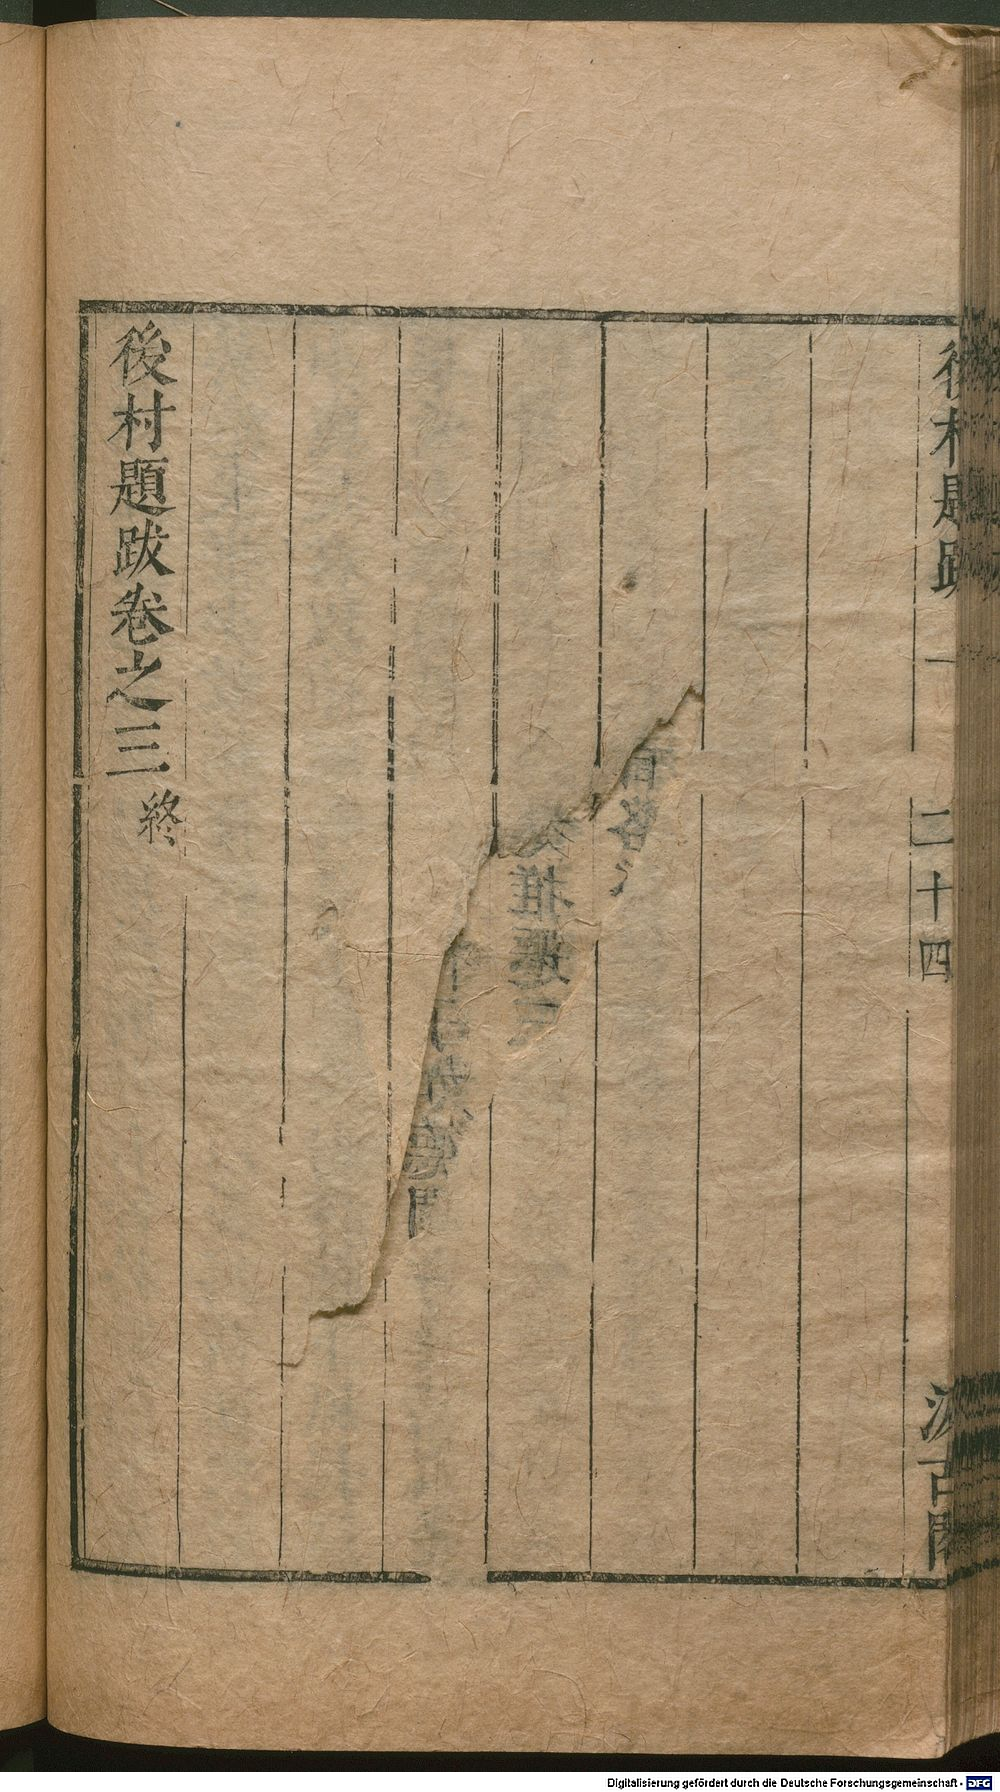 後村題跋
二十四
汲古閣
後村題跋卷之三終
Digitalisierung gefördert durch die Deutsche Forschungsgemeinschaft - DFG